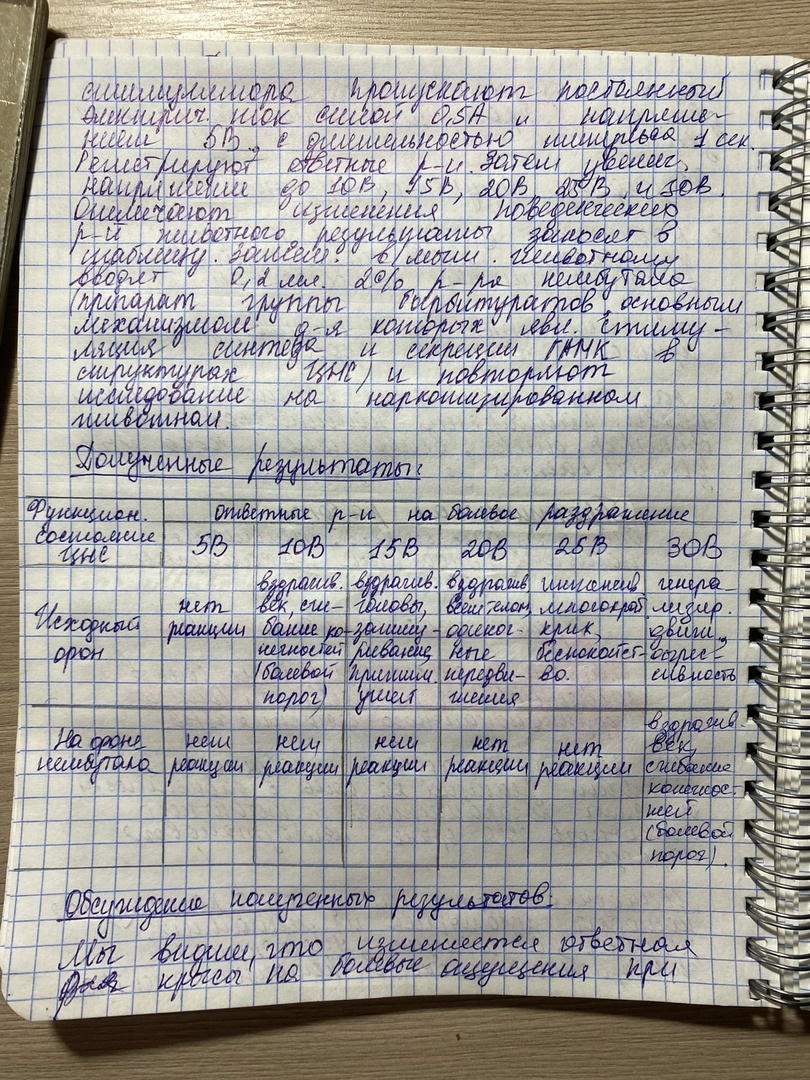 стимулятора пропускают постоянный
электрич. ток силой 0,5А и напряже-
нием 5В с длительностью импульса 1 сек.
Регистрируют ответные р-и. Затем увелич.
напряжение до 10В, 15В, 20В, 25В и 30В.
Отмечают изменения поведенческих
р-й животного результаты заносят в
таблицу. Затем в/мыш. животному
вводят 0,2 мл. 2% р-ра нембутала
(препарат группы барбитуратов, основным
механизмом д-я которых явл. стиму-
ляция синтеза и секреции ГАМК в
структурах ЦНС) и повторяют
исследование на наркотизированном
животном.
Полученные результаты:
Функцион. состояние ЦНС
ответные р-и на болевое раздражение
5В 10В 15В 20В 25В 30В
Исходный фон
нет реакции
вздрагив. век, сги-
бание ко-
нечностей
(болевой
порог)
вздрагив.
головы,
зажму-
ривание,
прижим.
ушей
вздрагив.
всем телом,
одиноч-
ные
передви-
жения
интенсив.
многократ.
крик,
беспокойст-
во.
генера-
лизир.
движ.,
агрес-
сивность
На фоне нембутала
нет реакции
нет реакции
нет реакции
нет реакции
нет реакции
вздрагив.
век,
сгибание
конечност
ней
(болевой
порог).
Обсуждение полученных результатов:
Мы видим, что изменяется ответная
крысы на болевые ощущения при